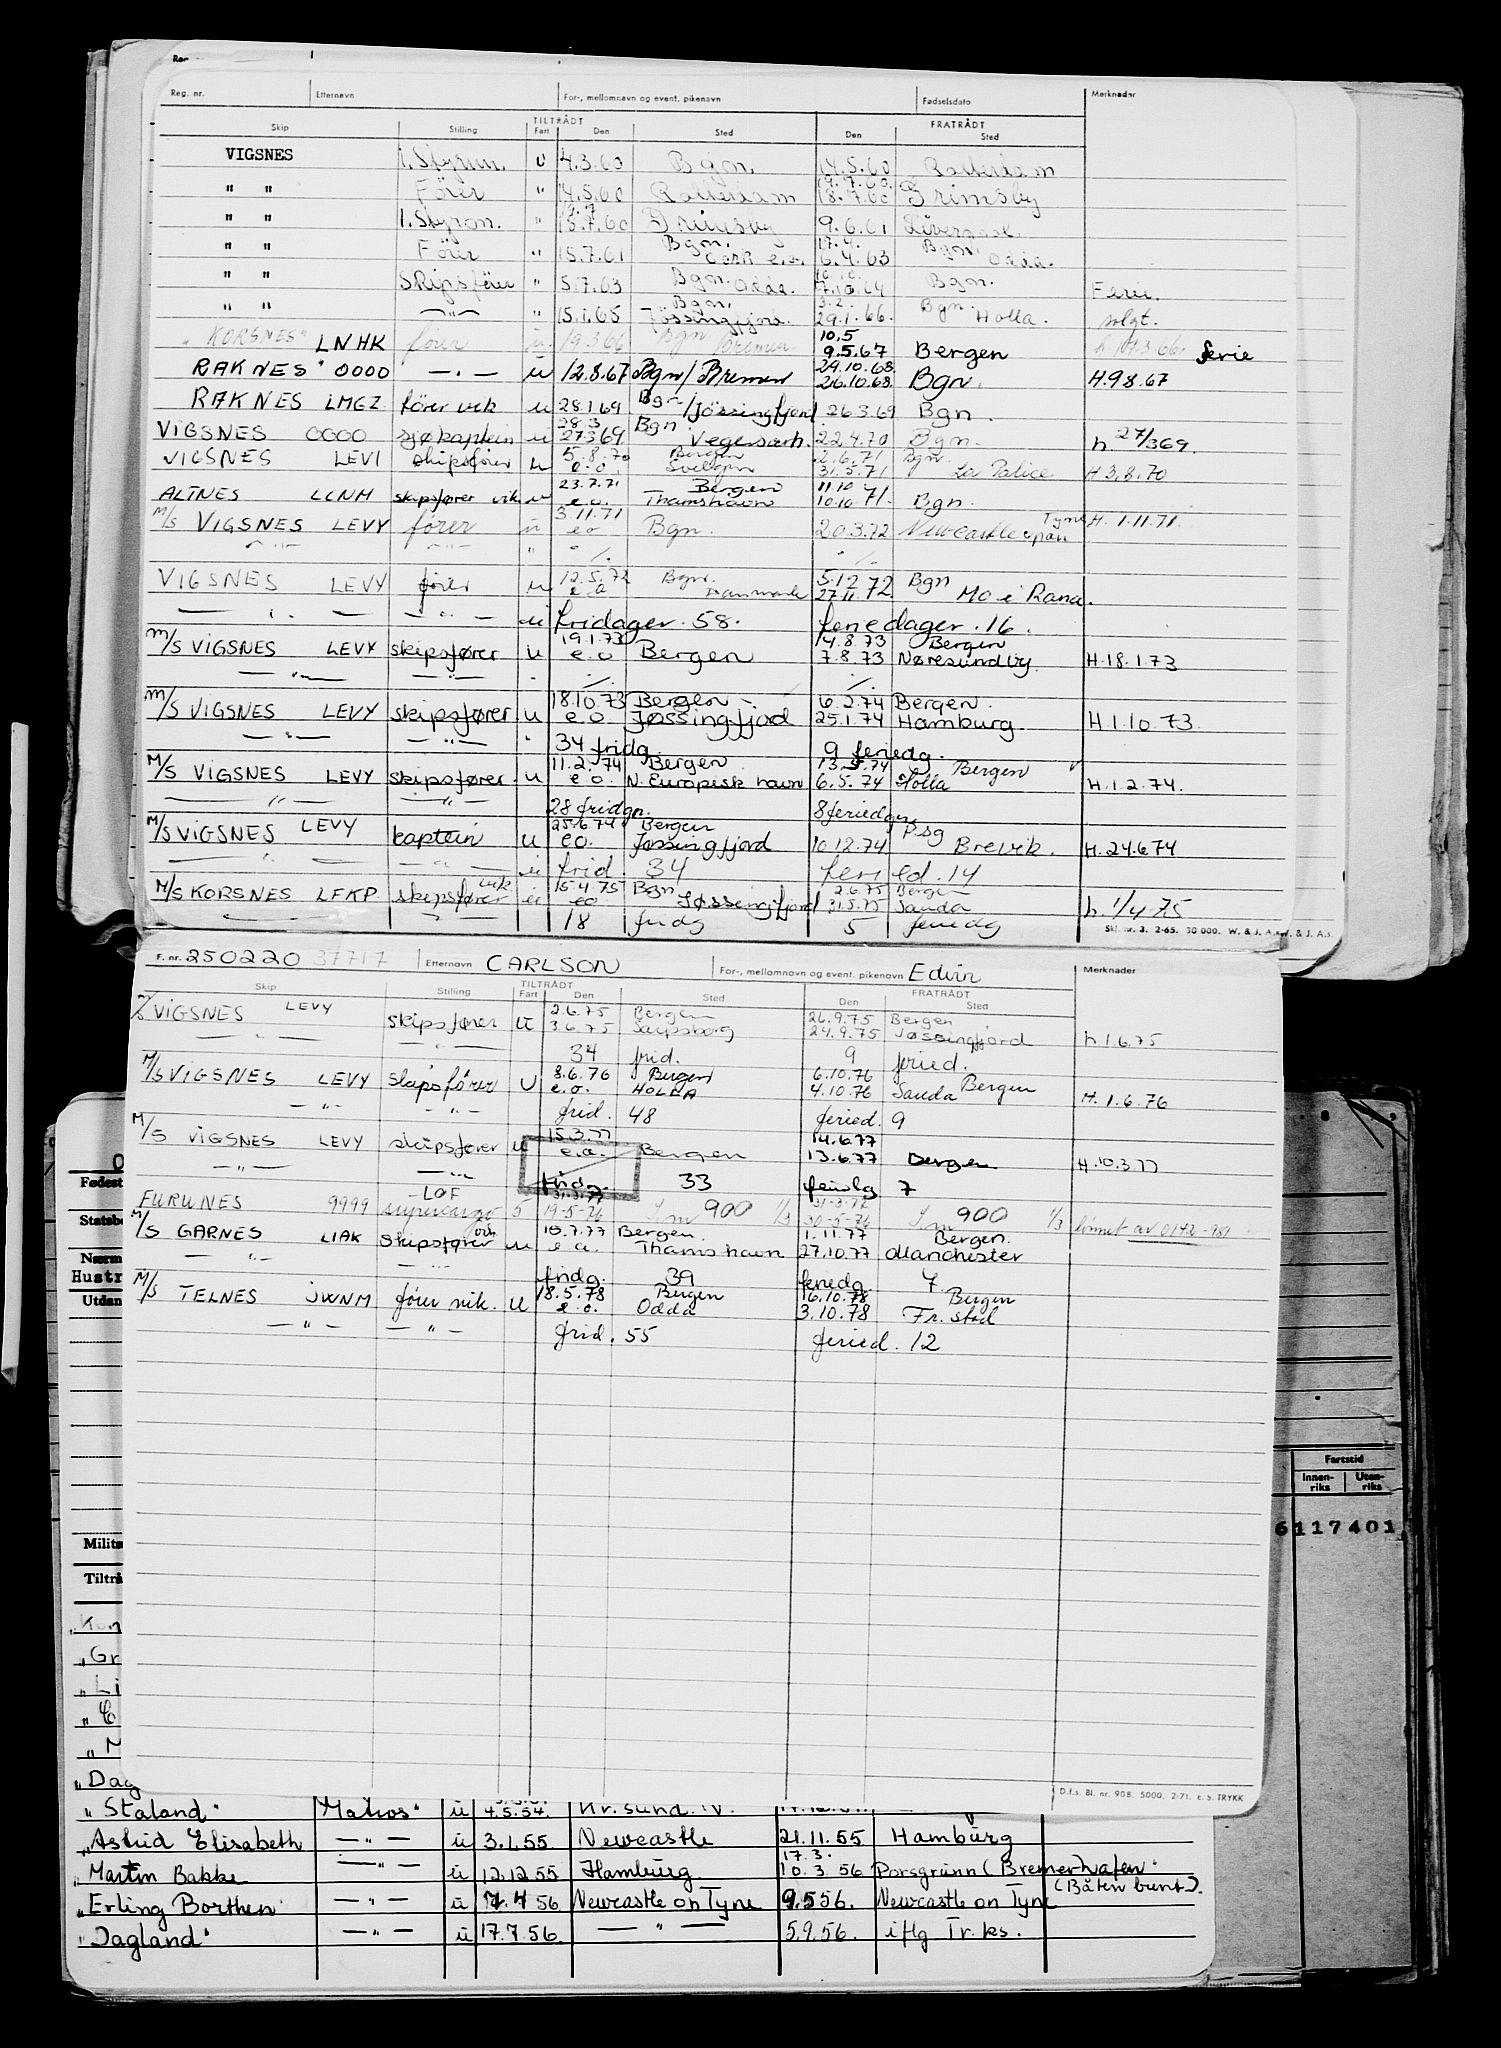 Reg. nr. Etternavn For-, mellomnavn og event. pikenavn Fødselsdato Merknader
TILTRÅDT FRATRÅDT
Skip Stilling Fart Den Sted Den Sted
VIGSNES 1. Styrm. u 4.3.60 Bgn. 14.5.60 Rotterdam
" " Fører " 14.5.60 Rotterdam 18.7.60 Grimsby
" " 1. Styrm. " 18.7.60 Grimsby 9.6.61 Liverpool
17.4.
" " Fører " 15.7.61 Bgn. Cork e.o. 6.4.63 Bgn. Odda.
" " Skipsfører " 5.7.63 Bgn. Odda. 7.10.64 Bgn. Ferie.
" " —"— " 15.1.65 Bgn. Jøssingfjord. 29.1.66. Bgn. Holla. solgt.
10.5
"KORSNES" LNHK fører u. 19.3.66 Bgn. Bremen 9.5.67 Bergen h. 19.3.66. ferie
29.10.68
RAKNES" 0000 — . — u 12.8.67 Bgn/Bremen 26.10.68 Bgn. H.9.8.67
RAKNES LMGZ fører vik u 28.1.69 Bgn/Jøssingfjord 26.3.69 Bgn.
28.3
VIGSNES 0000 sjøkaptein u 27.3.69 Bgn. Vegesach. 22.4.70 Bgn. h. 27/369.
5.8.70 Bergen 2.6.71 Bgn.
VIGSNES LEVI skipsfører u e.o. Svelgen 31.5.71 La Palice H 3.8.70
23.7.71 Bergen 11.10
ALTNES LCNM skipsfører vik u e.o. Thamshavn 10.10.71. Bgn.
3.11.71
M/S VIGSNES LEVY fører u eo Bgn. 20.3.72 Newcastle upon Tyne H. 1.11.71.
12.5.72 Bgn. 5.12.72 Bgn
VIGSNES LEVY fører u e.o Danmark 27.11.72 Mo i Rana.
— " — — " — u fridager. 58. feriedager. 16.
19.1.73 14.8.73 Bergen
M/S VIGSNES LEVY skipsfører u e.o Bergen 7.8.73 Nøresundby H.18.1.73
— " — — " —
18.10.73 Bergen 6.2.74 Bergen.
M/S VIGSNES LEVY skipsfører u e.o. Jøssingfjord 25.1.74 Hamburg H.1.10.73.
— " — — " — " 34 fridg. 9 feriedg.
11.2.74 Bergen 13.5.74 Bergen
M/S VIGSNES LEVY skipsfører. u e.o. N. Europeisk havn 6.5.74 Holla H.1.2.74.
— " — — " — 28 fridgr. 8 feriedgr.
25.6.74 Bergen Psg
M/S VIGSNES LEVY kaptein u eo. Jøssingfjord 10.12.74 Brevik. H.24.6.74
— " — — " — u frid. 34 feried. 14
15.4.75 Bgn 2.6.75 Bergen
M/S KORSNES LFKP skipsfører vik u eo Jøssingfjord 31.5.75 Sauda h. 1/4 75
— " — — " — 18 fridg 5 feriedg
Skj. nr. 3. 2-65. 30 000. W. & J. A.s.
F. nr. 250220 37717 Etternavn CARLSON For-, mellomnavn og event. pikenavn Edvin Merknader
TILTRÅDT FRATRÅDT
Skip Stilling Fart Den Sted Den Sted
2.6.75 Bergen 26.9.75 Bergen
VIGSNES LEVY skipsfører u 3.6.75 Sarpsborg 24.9.75 Jøssingfjord h.1.6.75
— " — — " — 34 frid. 9 feried.
8.6.76 Bergen 6.10.76 Bergen
M/S VIGSNES LEVY skipsfører U e.o. HOLLA 4.10.76 Sauda H. 1.6.76
— " — — " — frid. 48 feried. 9
15.3.77 14.6.77
M/S VIGSNES LEVY skipsfører u e.o. Bergen 13.6.77 Bergen H.10.3.77
— " — — " — fridg. 33 feriedg 7
LOF 31-3-77 31-3-77
FURUNES 9999 supercargo 5 19-5-76 900 1/3 30-5-76 900 1/3 lønnet av 0142-981
10.7.77 Bergen. 1.11.77 Bergen.
M/S GARNES LIAK skipsfører vik u e.o. Thamshavn 27.10.77 Manchester
— " — — " — fridg. 39 feriedg 7
18.5.78 Bergen 16.10.78 Bergen
M/S TELNES JWNM fører vik. U e.o. Odda 3.10.78 Fr. stad
— " — — " — frid. 55 feried. 12
D.f.s. Bl. nr. 908. 5000. 2-71. E.S. TRYKK
Fødest
Statsbo
Nærm
Hustr
Utdan
Milita
Tiltrå
Fartstid
Innenriks Utenriks
6117401
"Gr
"Li
"Dag
"Staland" Matros" ü 4.5.54. Kr.sund. N.
"Astrid Elisabeth — " — ü 3.1.55 Newcastle 21.11.55 Hamburg
17.3.
"Martin Bakke — " — ü 12.12.55 Hamburg 10.3.56 Porsgrunn (Bremerhafen
"Erling Borthen" — " — ü 17.4 56 Newcastle on Tyne 9.5 56. Newcastle on Tyne (Båten brent).
"Dagland" — " — ü 17.7.56. — " — 5.9.56. iflg Tr. ks.